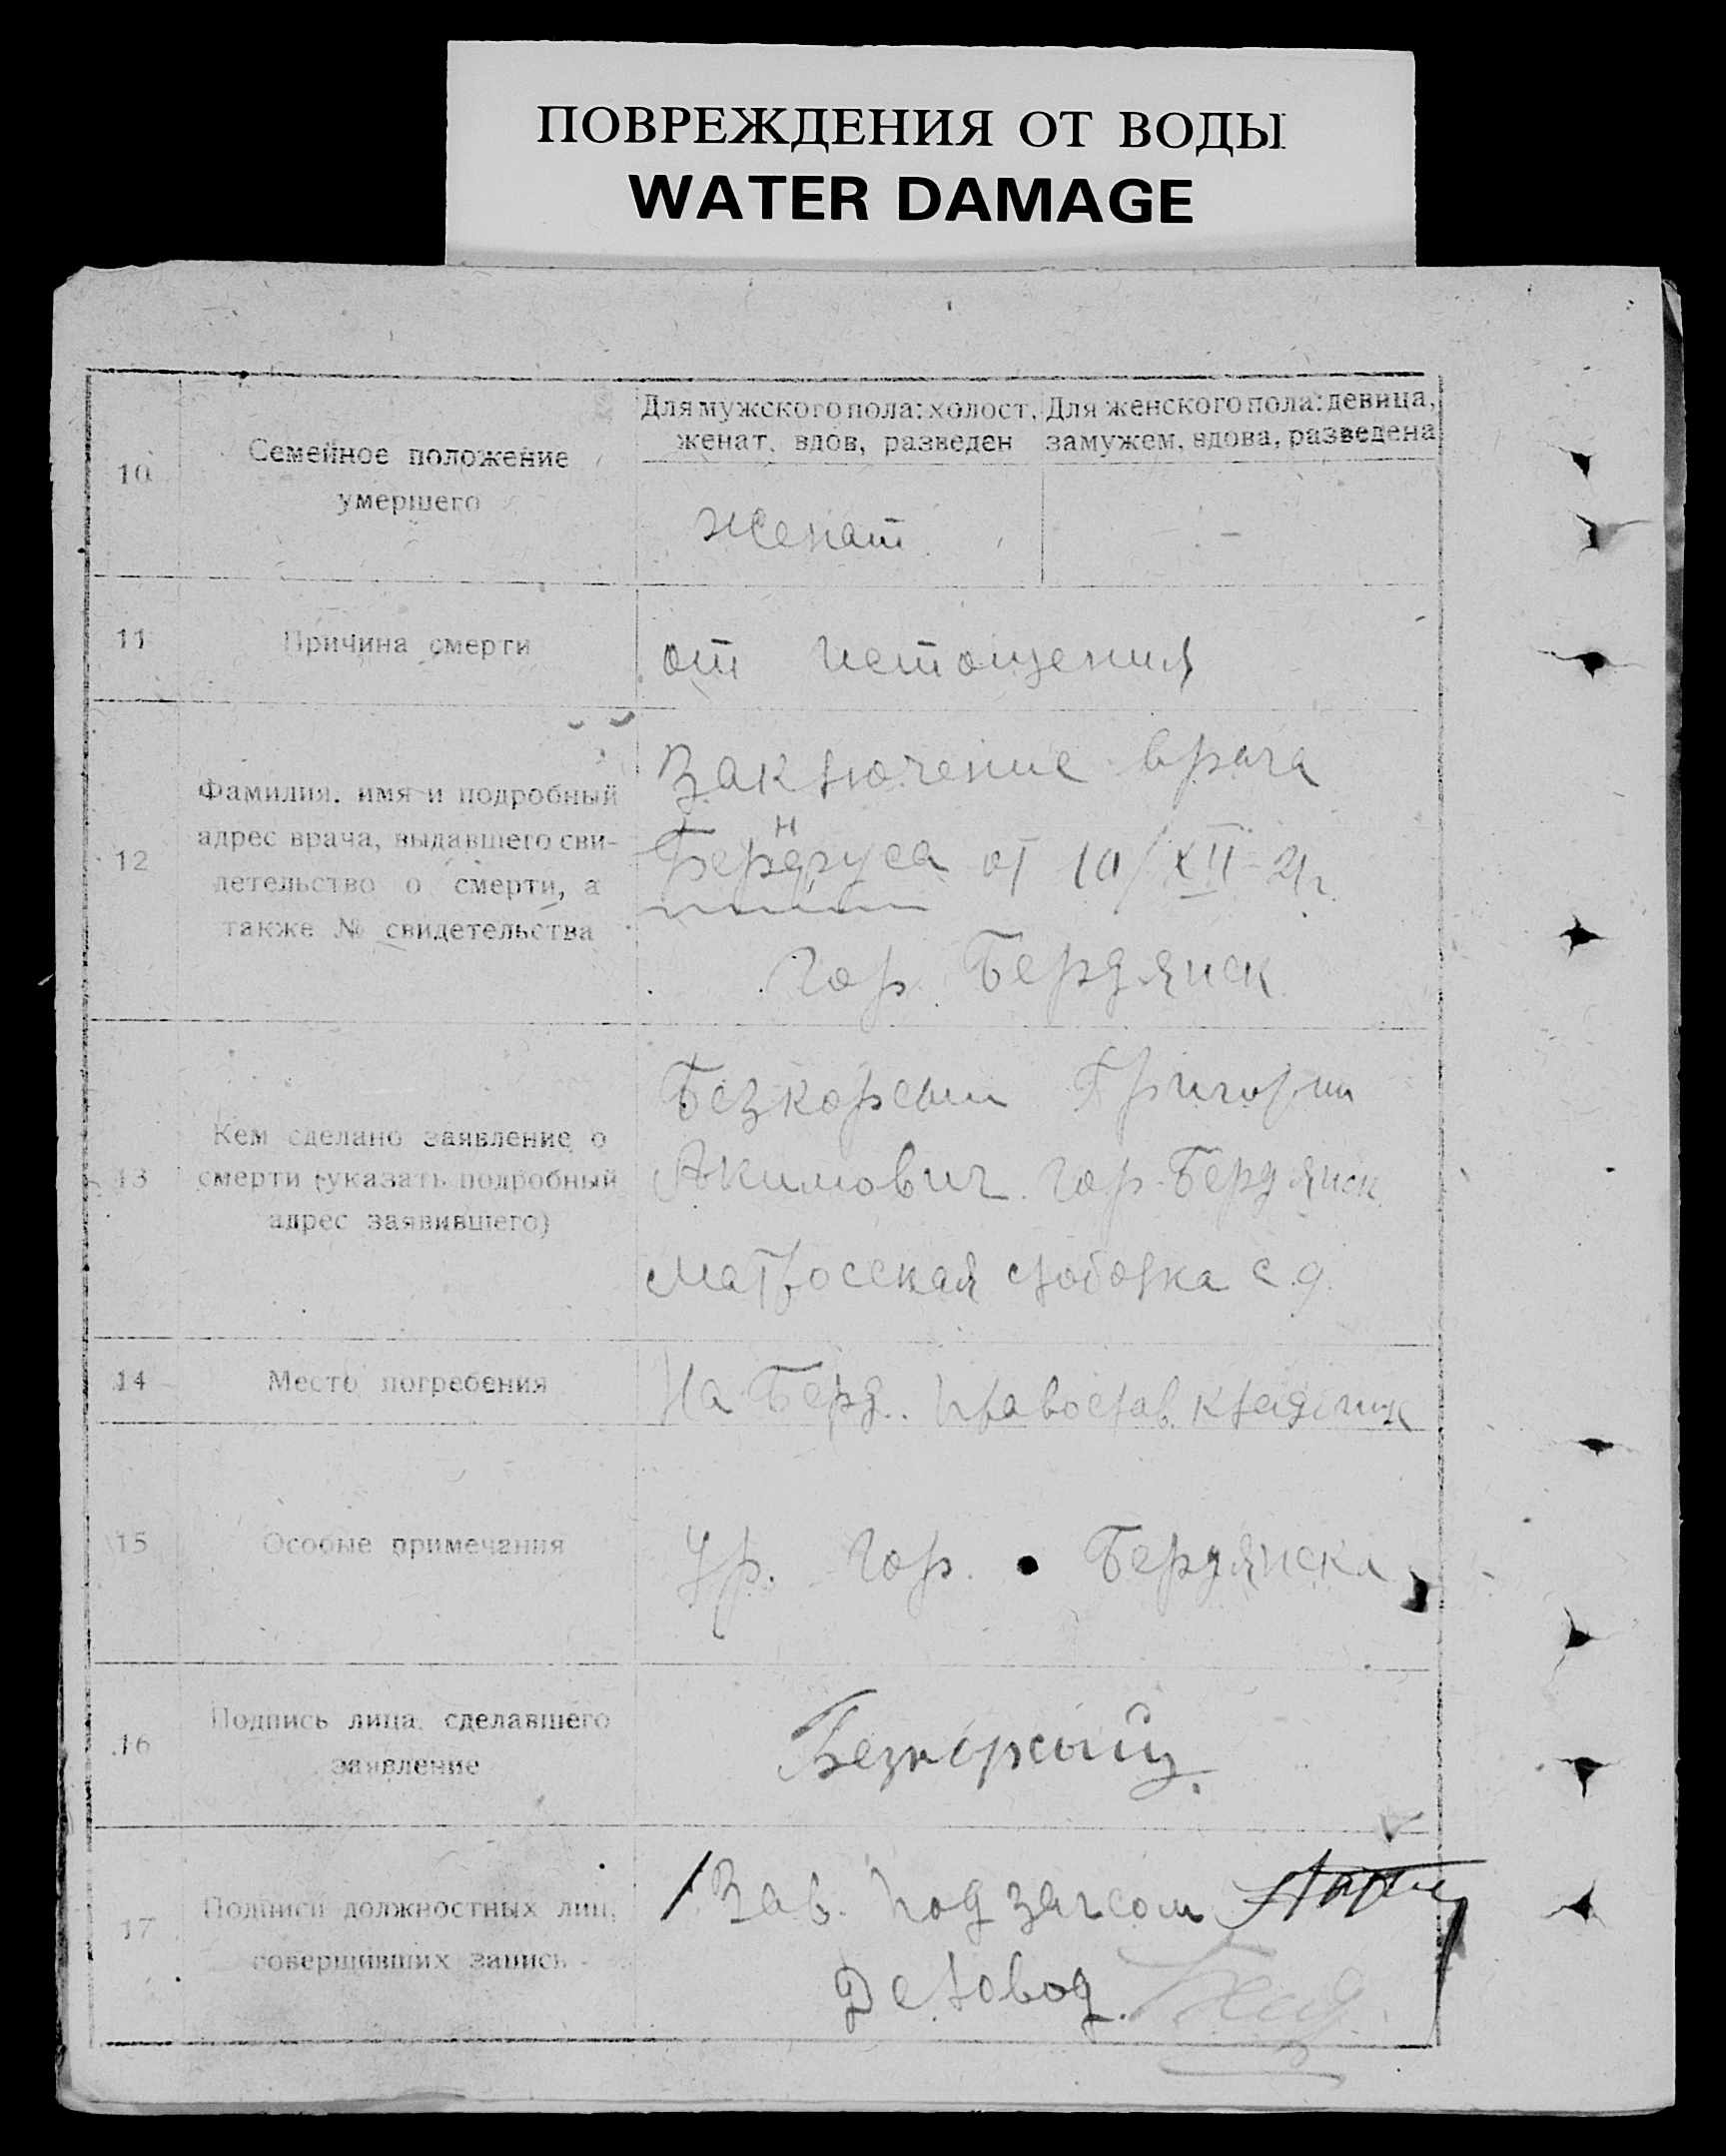 ПОВРЕЖДЕНИЯ ОТ ВОДЫ
WATER DAMAGE
10
Семейное положение
умершего
Для мужского пола: холост,
женат, вдов, разведен
Для женского пола: девица,
замужем, вдова, разведена
Женат
-
11
Причина смерти
от истощения
12
Фамилия, имя и подробный
адрес врача, выдавшего сви-
детельство о смерти, а
также № свидетельства
Заключение врача
от 10/XII-21г.
гор. Бердянск
13
Кем сделано заявление о
смерти (указать подробный
адрес заявившего)
Безкорсый Григорий
Акимович гор. Бердянск
Матросская слободка с.д.
14
Место погребения
На Берд. православ. кладбище
15
Особые примечания
Ур. гор. Бердянска
16
Подпись лица, сделавшего
заявление
Безкорсый
17
Подписи должностных лиц,
совершивших запись
Зав. подзагсом
Деловод